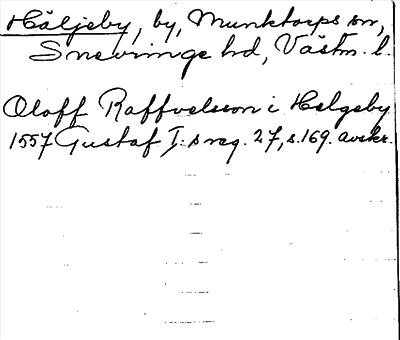 Häljeby, by, Munktorps sn,
Snevringe hd, Västm. l.
Oloff Raffvelsson i Helgeby
1557 Gustaf I:s reg. 27, s. 169. avskr.